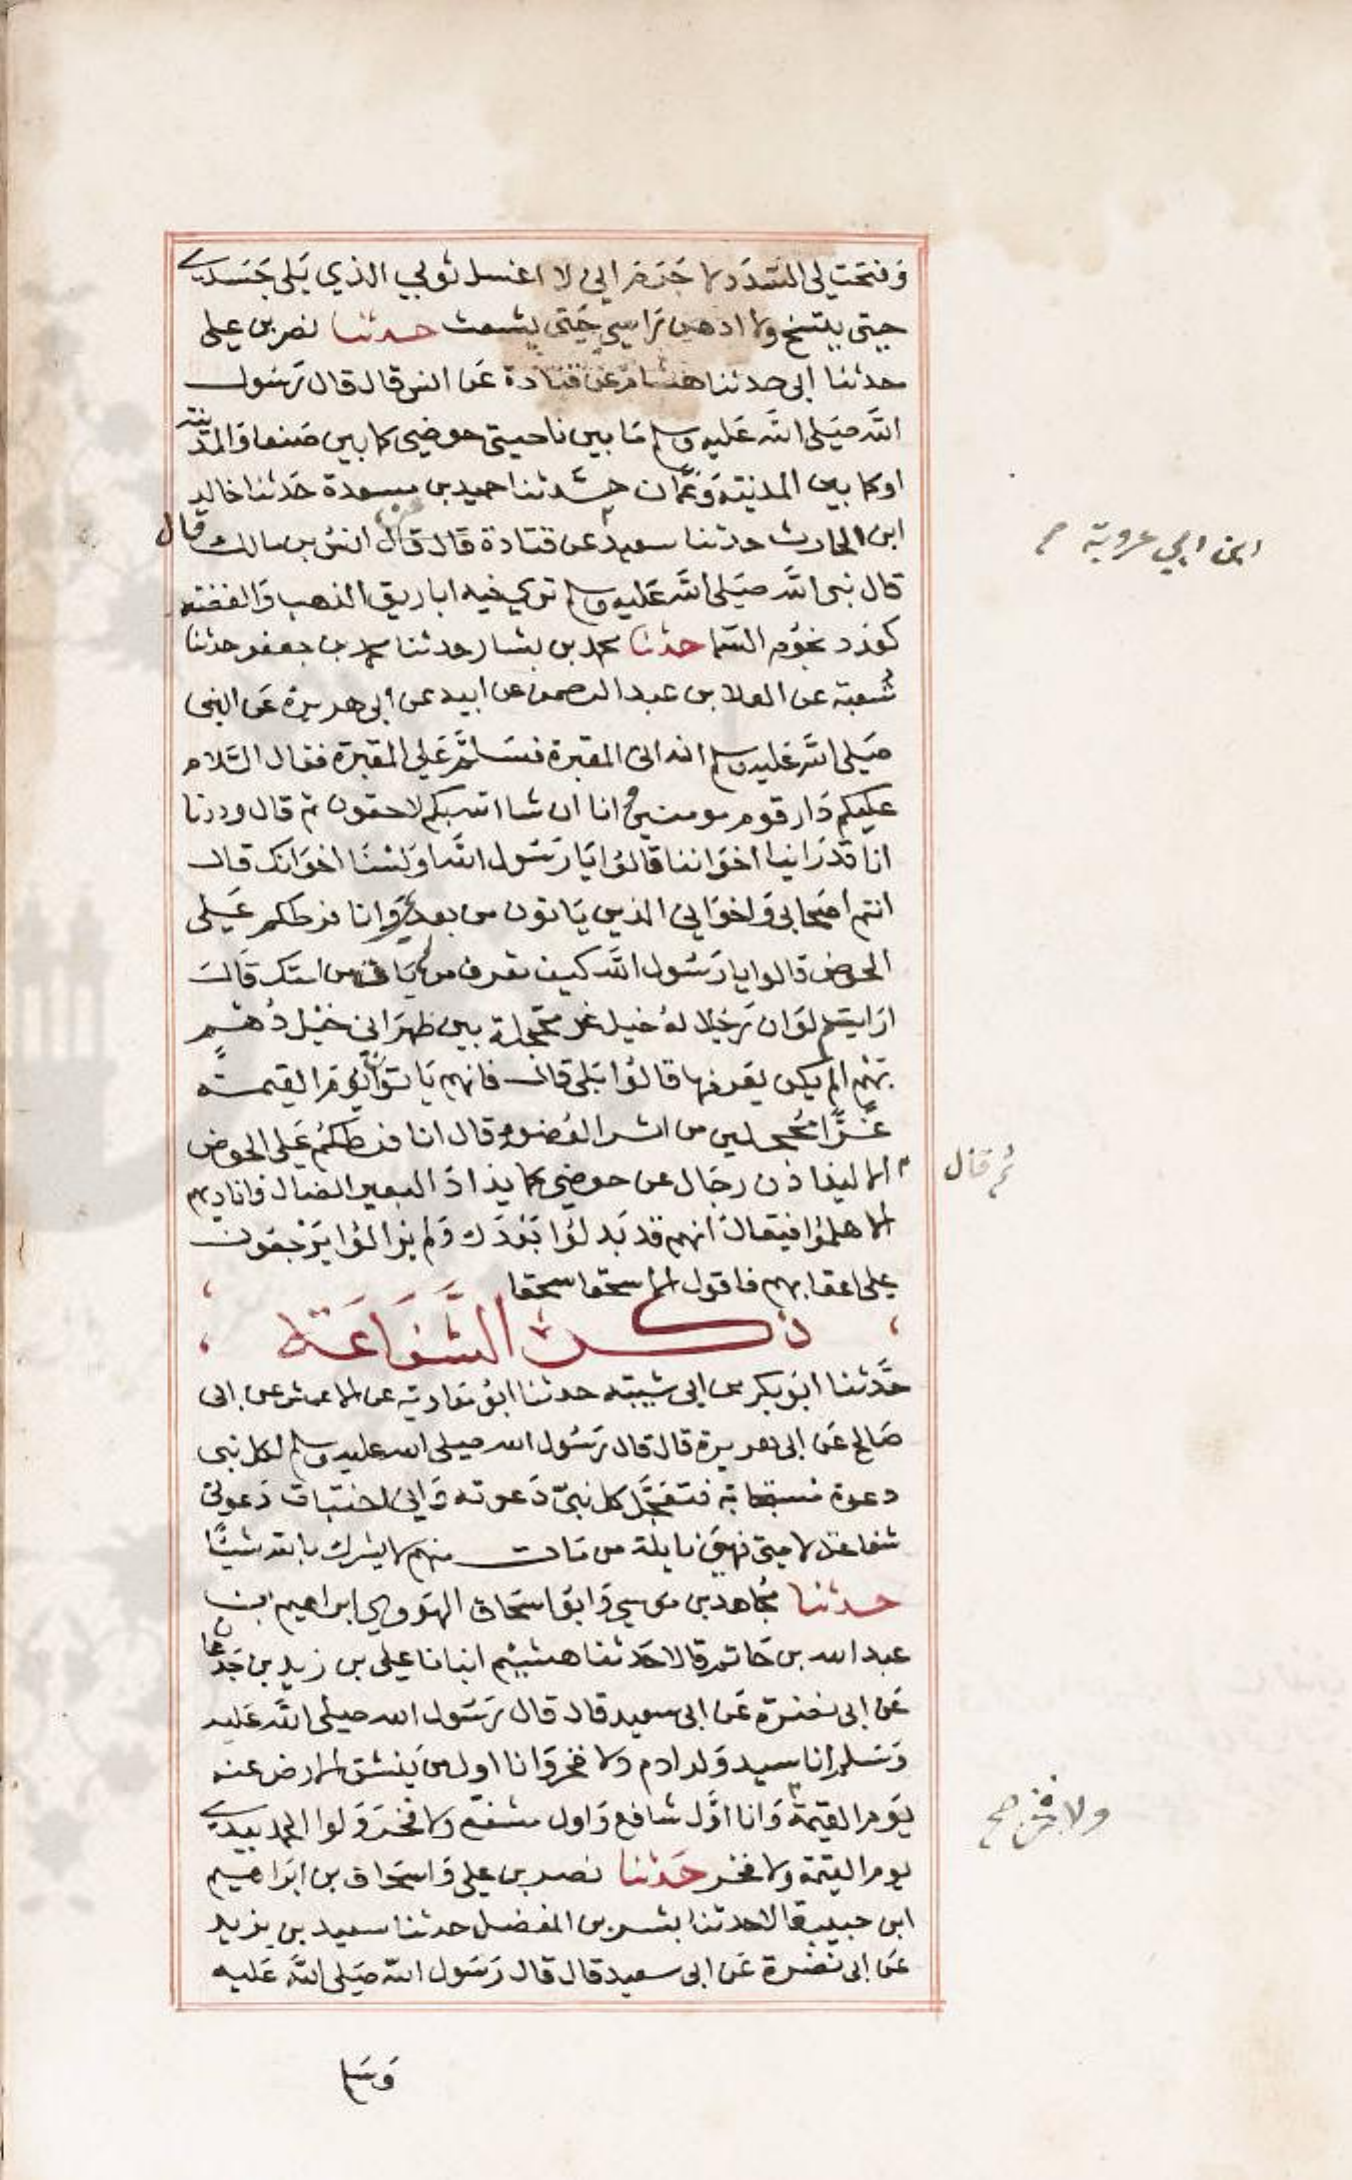 وفتحت لي السدد ولا جرم اني لا اغسل ثوبي الذي يلي جسدي
حتى يتسخ ولا ادهن راسي حتى يشعث حدثنا نصر بن علي
حدثنا ابي حدثنا هشام عن قتادة عن انس قال قال رسول
الله صلى الله عليه وسلم ما بين ناحيتي حوضي كما بين صنعا والمدينة
او كما بين المدينة وعمان حدثنا حميد بن مسعدة حدثنا خالد
ابن الحارث حدثنا سعيد عن قتادة قال قال انس بن مالك قال
ابن ابي عروبة صح
قال نبي الله صلى الله عليه وسلم ترى فيه اباريق الذهب والفضة
كعدد نجوم السما حدثنا محمد بن بشار حدثنا محمد بن جعفر حدثنا
شعبة عن العلا بن عبد الرحمن عن ابيه عن ابي هريرة عن النبي
صلى الله عليه وسلم انه اتى المقبرة فسلم على المقبرة فقال السلام
عليكم دار قوم مومنين وانا ان شا الله بكم لاحقون ثم قال وددنا
انا قد راينا اخواننا قالوا يا رسول الله اولسنا اخوانك قال
انتم اصحابي واخواني الذين ياتون من بعدي وانا فرطكم على
الحوض قالوا يا رسول الله كيف تعرف من لم يات من امتك قال
ارايتم لو ان رجلا له خيل غر محجلة بين ظهراني خيل دهم
بهم الم يكن يعرفها قالوا بلى قال فانهم ياتون يوم القيمة
غرا محجلين من اثر الوضوء قال انا فرطكم على الحوض
ثم قال
الا ليذادن رجال عن حوضي كما يذاد البعير الضال فاناديهم
الا هلموا فيقال انهم قد بدلوا بعدك ولم يزالوا يرجعون
على اعقابهم فاقول الا سحقا سحقا
ذكر الشفاعة
حدثنا ابو بكر بن ابي شيبة حدثنا ابو معاوية عن الاعمش عن ابي
صالح عن ابي هريرة قال قال رسول الله صلى الله عليه وسلم لكل نبي
دعوة مستجابة فتعجل كل نبي دعوته واني اختبات دعوتي
شفاعة لامتي فهي نايلة من مات منهم لا يشرك بالله شيئا
حدثنا مجاهد بن موسى وابو اسحاق الهروي ابراهيم بن
عبد الله بن حاتم قالا حدثنا هشيم انبانا علي بن زيد بن جدعان
عن ابي نضرة عن ابي سعيد قال قال رسول الله صلى الله عليه
وسلم انا سيد ولد ادم ولا فخر وانا اول من ينشق الارض عنه
يوم القيمة وانا اول شافع واول مشفع ولا فخر ولوا الحمد بيدي
ولا فخر صح
يوم القيمة ولا فخر حدثنا نصر بن علي واسحاق بن ابراهيم
ابن حبيب قالا حدثنا بشر بن المفضل حدثنا سعيد بن يزيد
عن ابي نضرة عن ابي سعيد قال قال رسول الله صلى الله عليه
وسلم